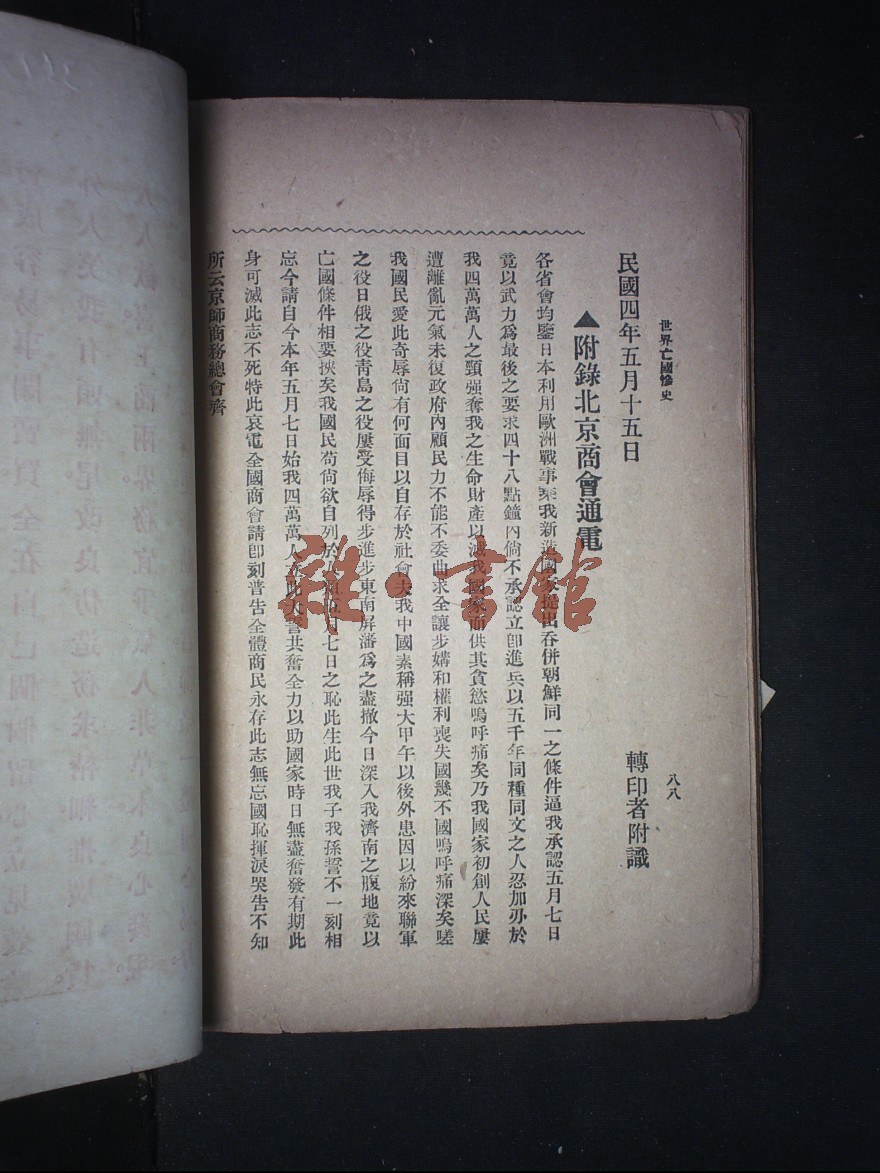 世界亡國慘史
八八
民國四年五月十五日
轉印者附識
▲附錄北京商會通電
各省會均鑒日本利用歐洲戰事乘我新造國家提出吞併朝鮮同一之條件逼我承認五月七日
竟以武力爲最後之要求四十八點鐘內倘不承認立卽進兵以五千年同種同文之人忍加刃於
我四萬萬人之頸强奪我之生命財產以滅我國家而供其貪慾嗚呼痛矣乃我國家初創人民屢
遭離亂元氣未復政府內顧民力不能不委曲求全讓步媾和權利喪失國幾不國嗚呼痛深矣嗟
我國民愛此奇辱尙有何面目以自存於社會夫我中國素稱强大甲午以後外患因以紛來聯軍
之役日俄之役靑島之役屢受侮辱得步進步東南屏藩爲之盡撤今日深入我濟南之腹地竟以
亡國條件相要挾矣我國民苟尙欲自列於人類五月七日之恥此生此世我子我孫誓不一刻相
忘今請自今本年五月七日始我四萬萬人立此大誓共奮全力以助國家時日無盡奮發有期此
身可滅此志不死特此哀電全國商會請卽刻普告全體商民永存此志無忘國恥揮淚哭告不知
所云京師商務總會齊
雜·書館